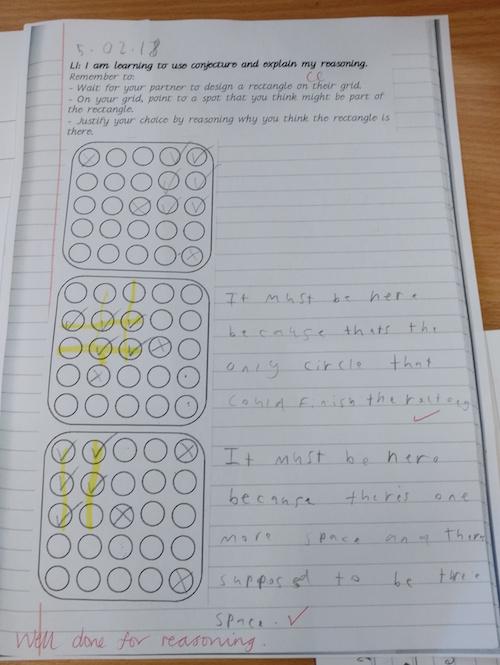 5.02.18
LI: I am learning to use conjecture and explain my reasoning.
CC
Remember to:
- Wait for your partner to design a rectangle on their grid.
- On your grid, point to a spot that you think might be part of
the rectangle.
- Justify your choice by reasoning why you think the rectangle is
there.
It must be here
because thats the
only circle that
could finish the
It must be here
because theris one
more space and
supposed to be
space.
Well done for reasoning.